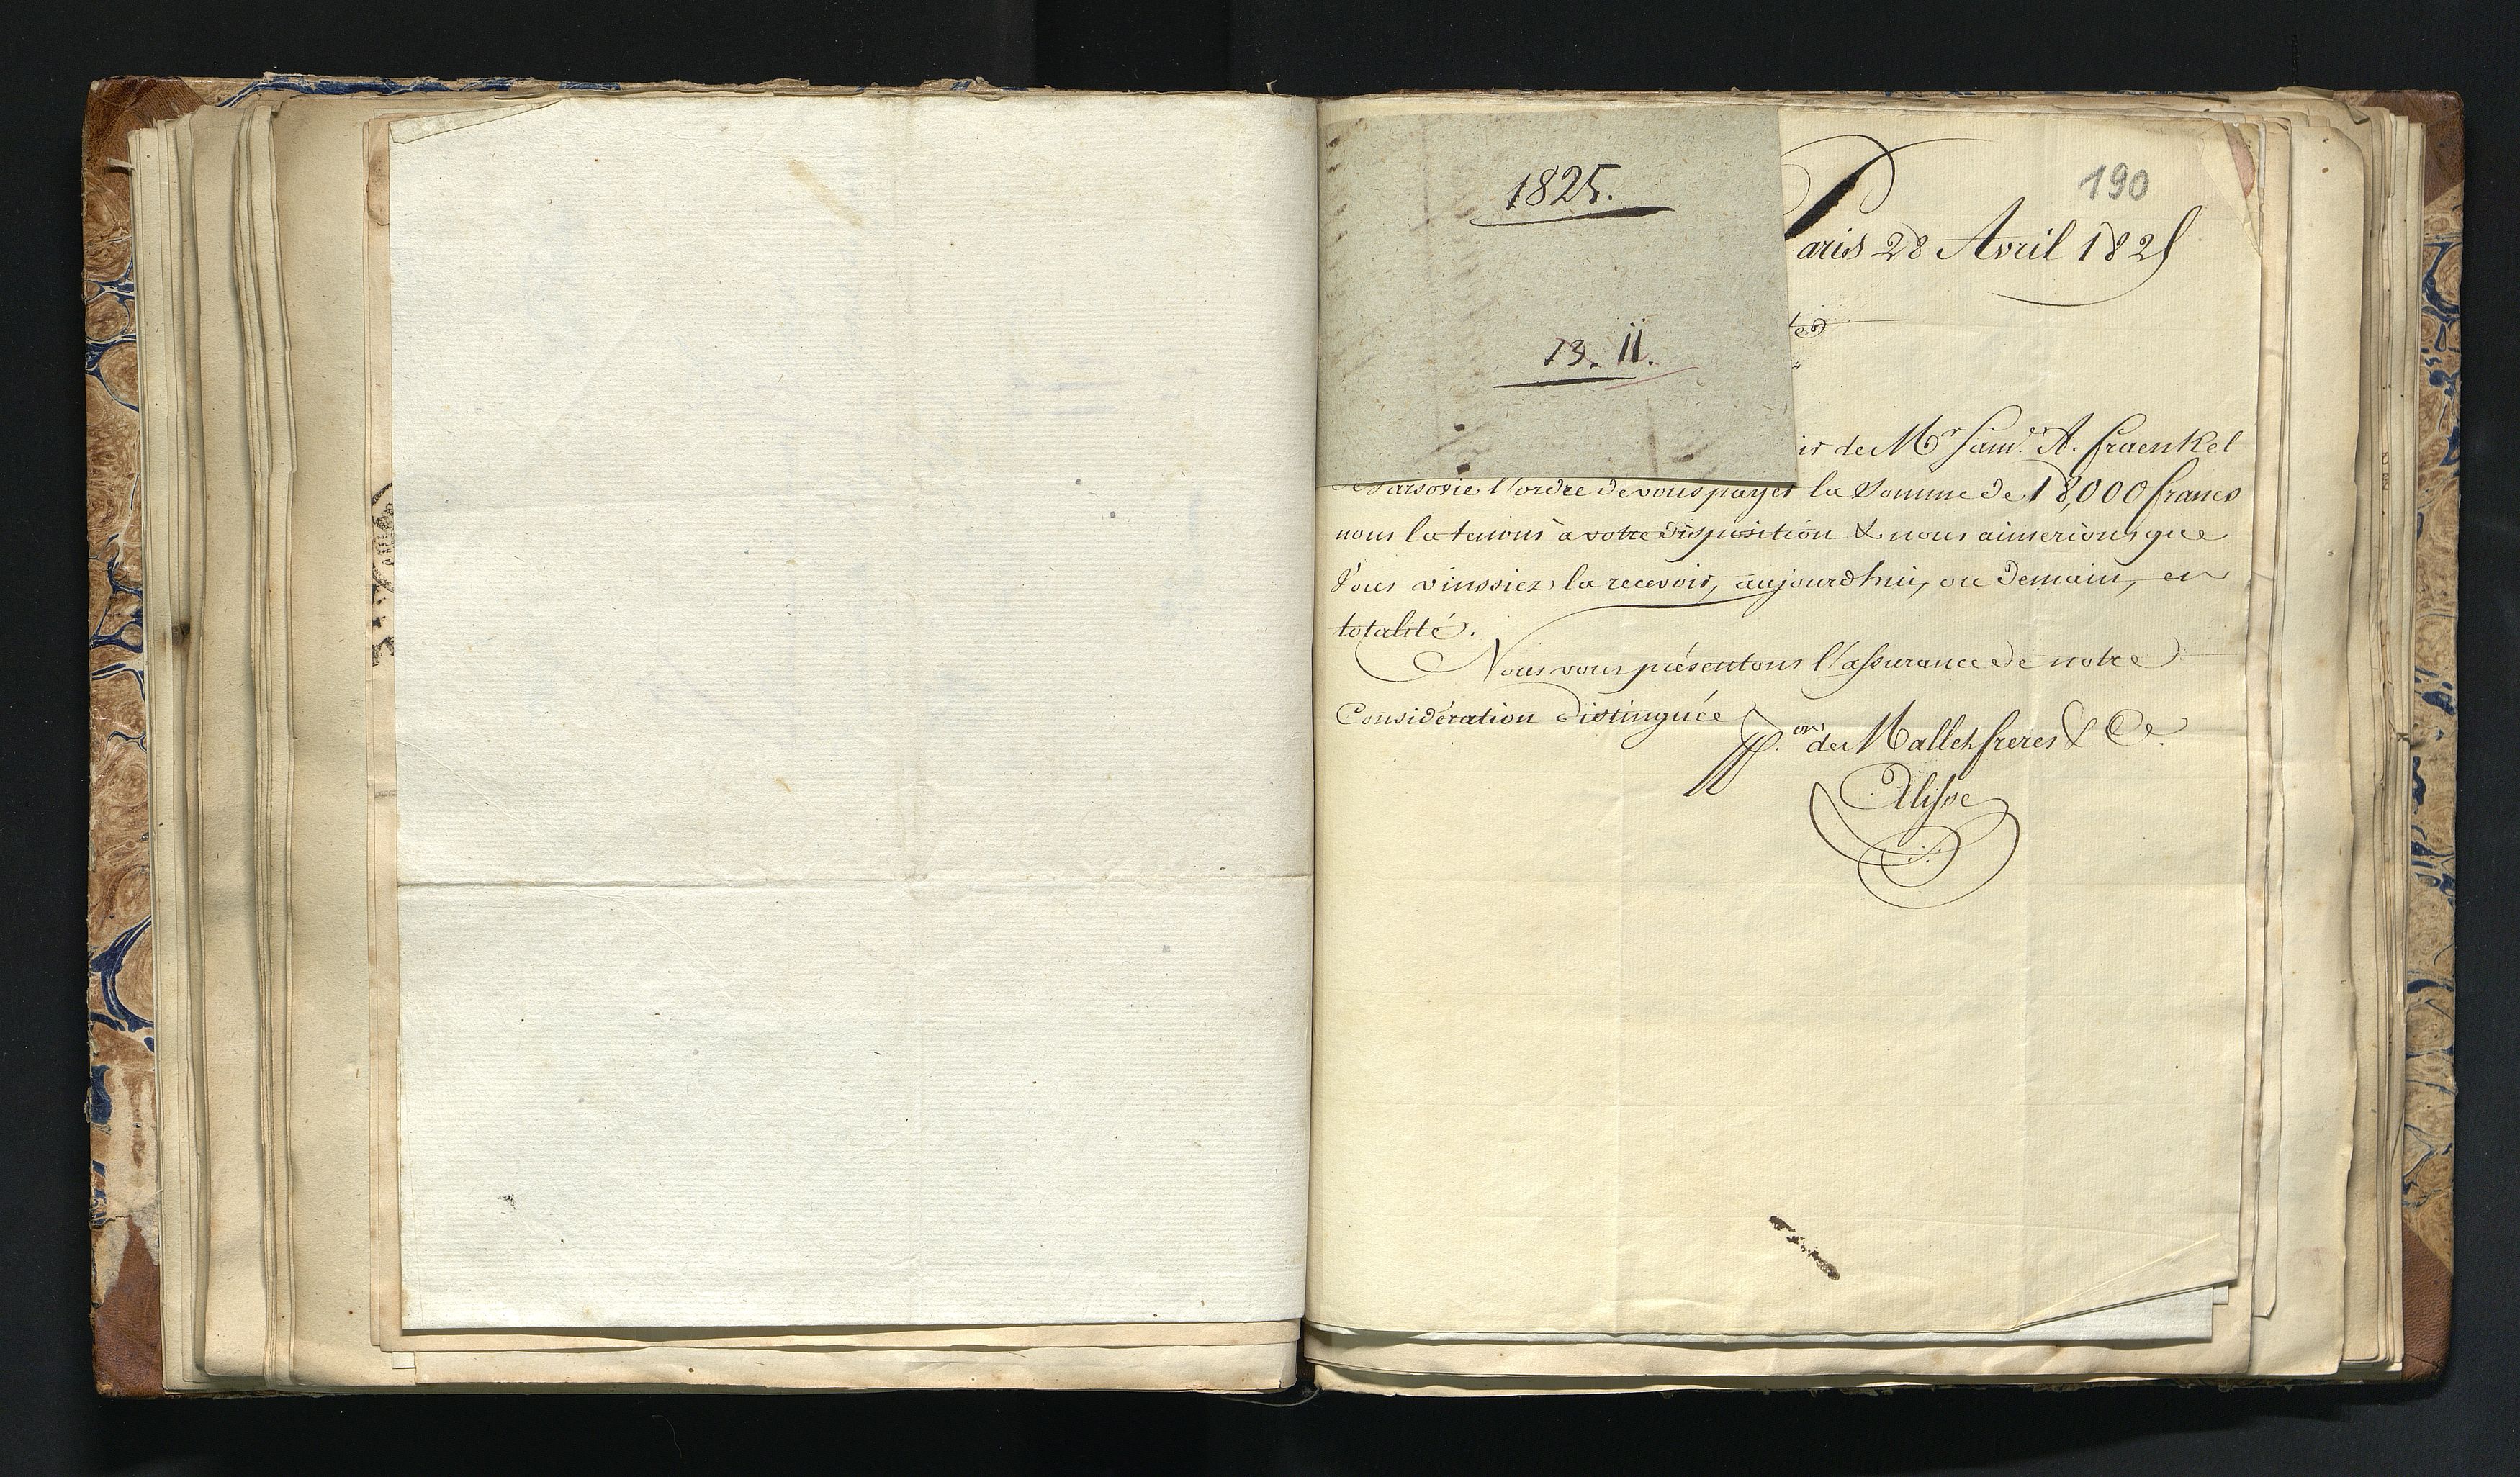 1825.
13. II.
190
Paris 28 Avril 1825
de Mr Saml. A. fraenkel
Varsovie l'ordre de vous payer la Somme de 18,000 francs
nous la tenons à votre disposition & nous aimerions que
Vous vinssiez la recevoir, aujourdhui, ou Demain, en
totalité.
Nous vous présentons l'assurance de notre
Considération distinguée
pp.on de Mallet freres & Ce.